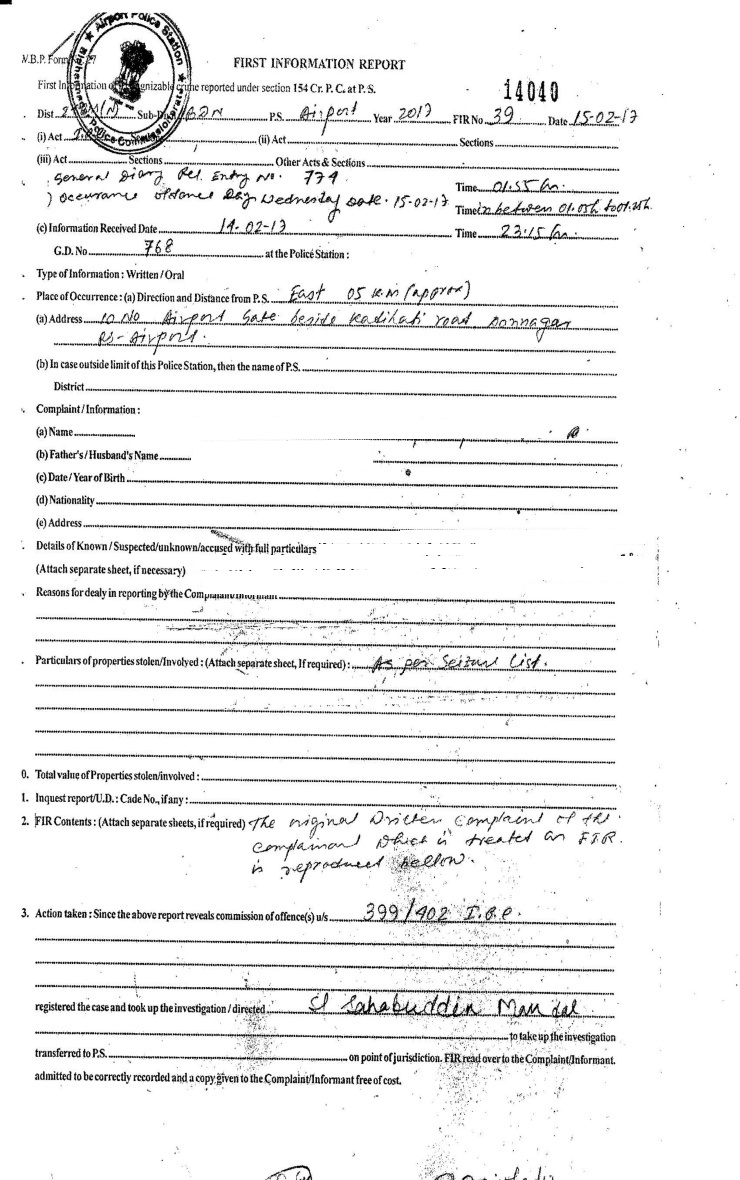 Airport Police Station
W.B.P. Form No. 27
FIRST INFORMATION REPORT
First Information of cognizable crime reported under section 154 Cr. P. C. at P. S.
14040
Dist 24 (N) Sub-Div BDN P.S. Airport Year 2017 FIR No 39 Date 15-02-17
(i) Act Sections (ii) Act Sections
(iii) Act Sections Other Acts & Sections
General Diary Ref. Entry No. 774 Time 01.55 hr.
) Occurance Day Wednesday Date. 15-02-17 Time in between 01.05h to 01.25h
(c) Information Received Date 14-02-17 Time 23.15 hr.
G.D. No 768 at the Police Station :
Type of Information : Written / Oral
Place of Occurrence : (a) Direction and Distance from P.S. East 05 K.m (approx)
(a) Address 10 No Airport Gate beside Kadihati road
PS-Airport.
(b) In case outside limit of this Police Station, then the name of P.S.
District
Complaint / Information :
(a) Name
(b) Father's / Husband's Name
(c) Date / Year of Birth
(d) Nationality
(e) Address
Details of Known / Suspected/unknown/accused with full particulars
(Attach separate sheet, if necessary)
Reasons for dealy in reporting by the Complainant/Informant
Particulars of properties stolen/Involved : (Attach separate sheet, If required) : As per Seizure List.
0. Total value of Properties stolen/involved :
1. Inquest report/U.D. : Cade No., if any :
2. FIR Contents : (Attach separate sheets, if required) The original Written Complaint of the
complainant which is treated as FIR.
is reproduced bellow.
3. Action taken : Since the above report reveals commission of offence(s) u/s 399/402 I.P.C.
registered the case and took up the investigation / directed SI Sahabuddin Mandal
to take up the investigation
transferred to P.S. on point of jurisdiction. FIR read over to the Complaint/Informant.
admitted to be correctly recorded and a copy given to the Complaint/Informant free of cost.